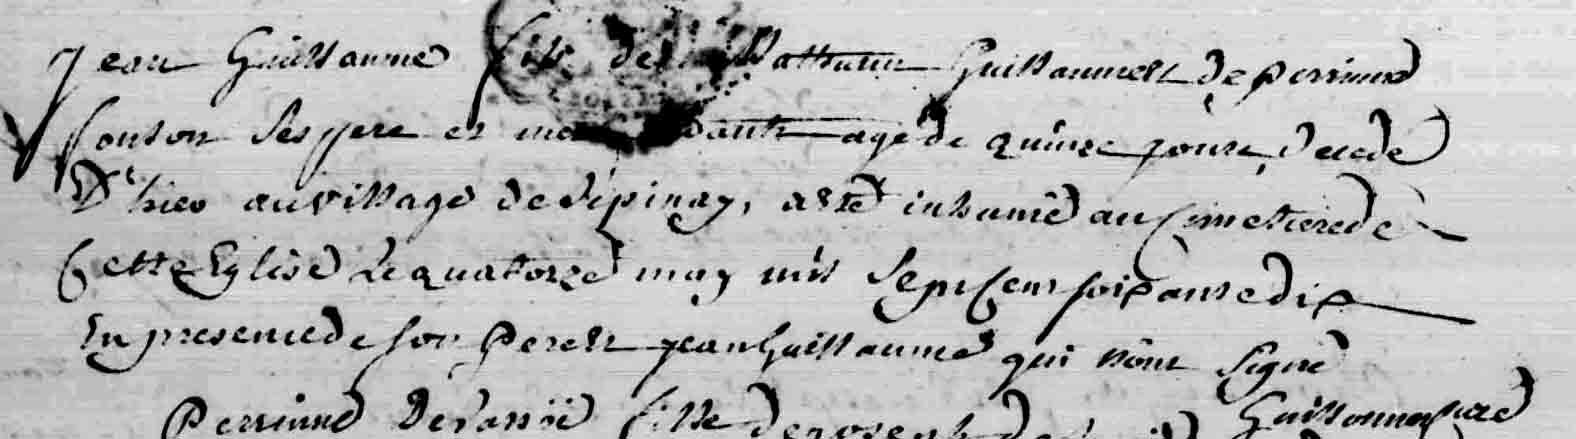 Jean Guillaume fils de Mathurin Guillaume et de perrinne
ses pere et agé de quinze jours, decede
D'hier au village de l'épinay, a eté inhumé au Cimetiere de
Cette Eglise Le quatorze may mil sept Cent soixante dix
En presence de son Pere et jean Guillaume qui n'ont signé
Perrinne fille Guillaume